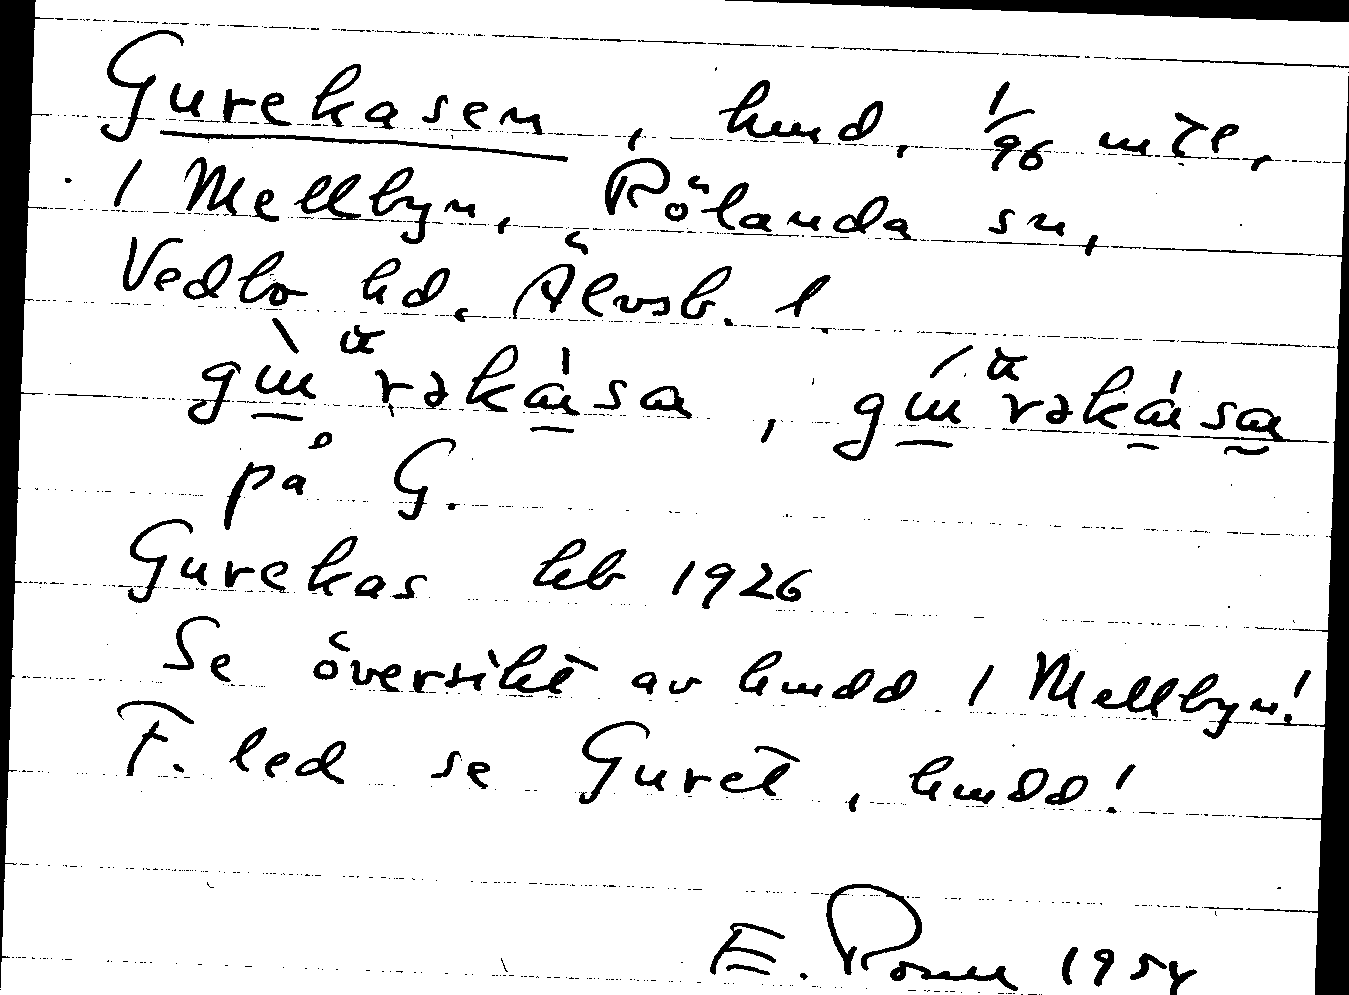 Gurekasen, hmd, 1/96 mtl,
i Mellbyn, Rölanda sn,
Vedbo hd. Älvsb. l.
på G.
Gurekas hb 1926
Se översikt av hmdd i Mellbyn!
F. led se Guret, hmdd!
E. 1954